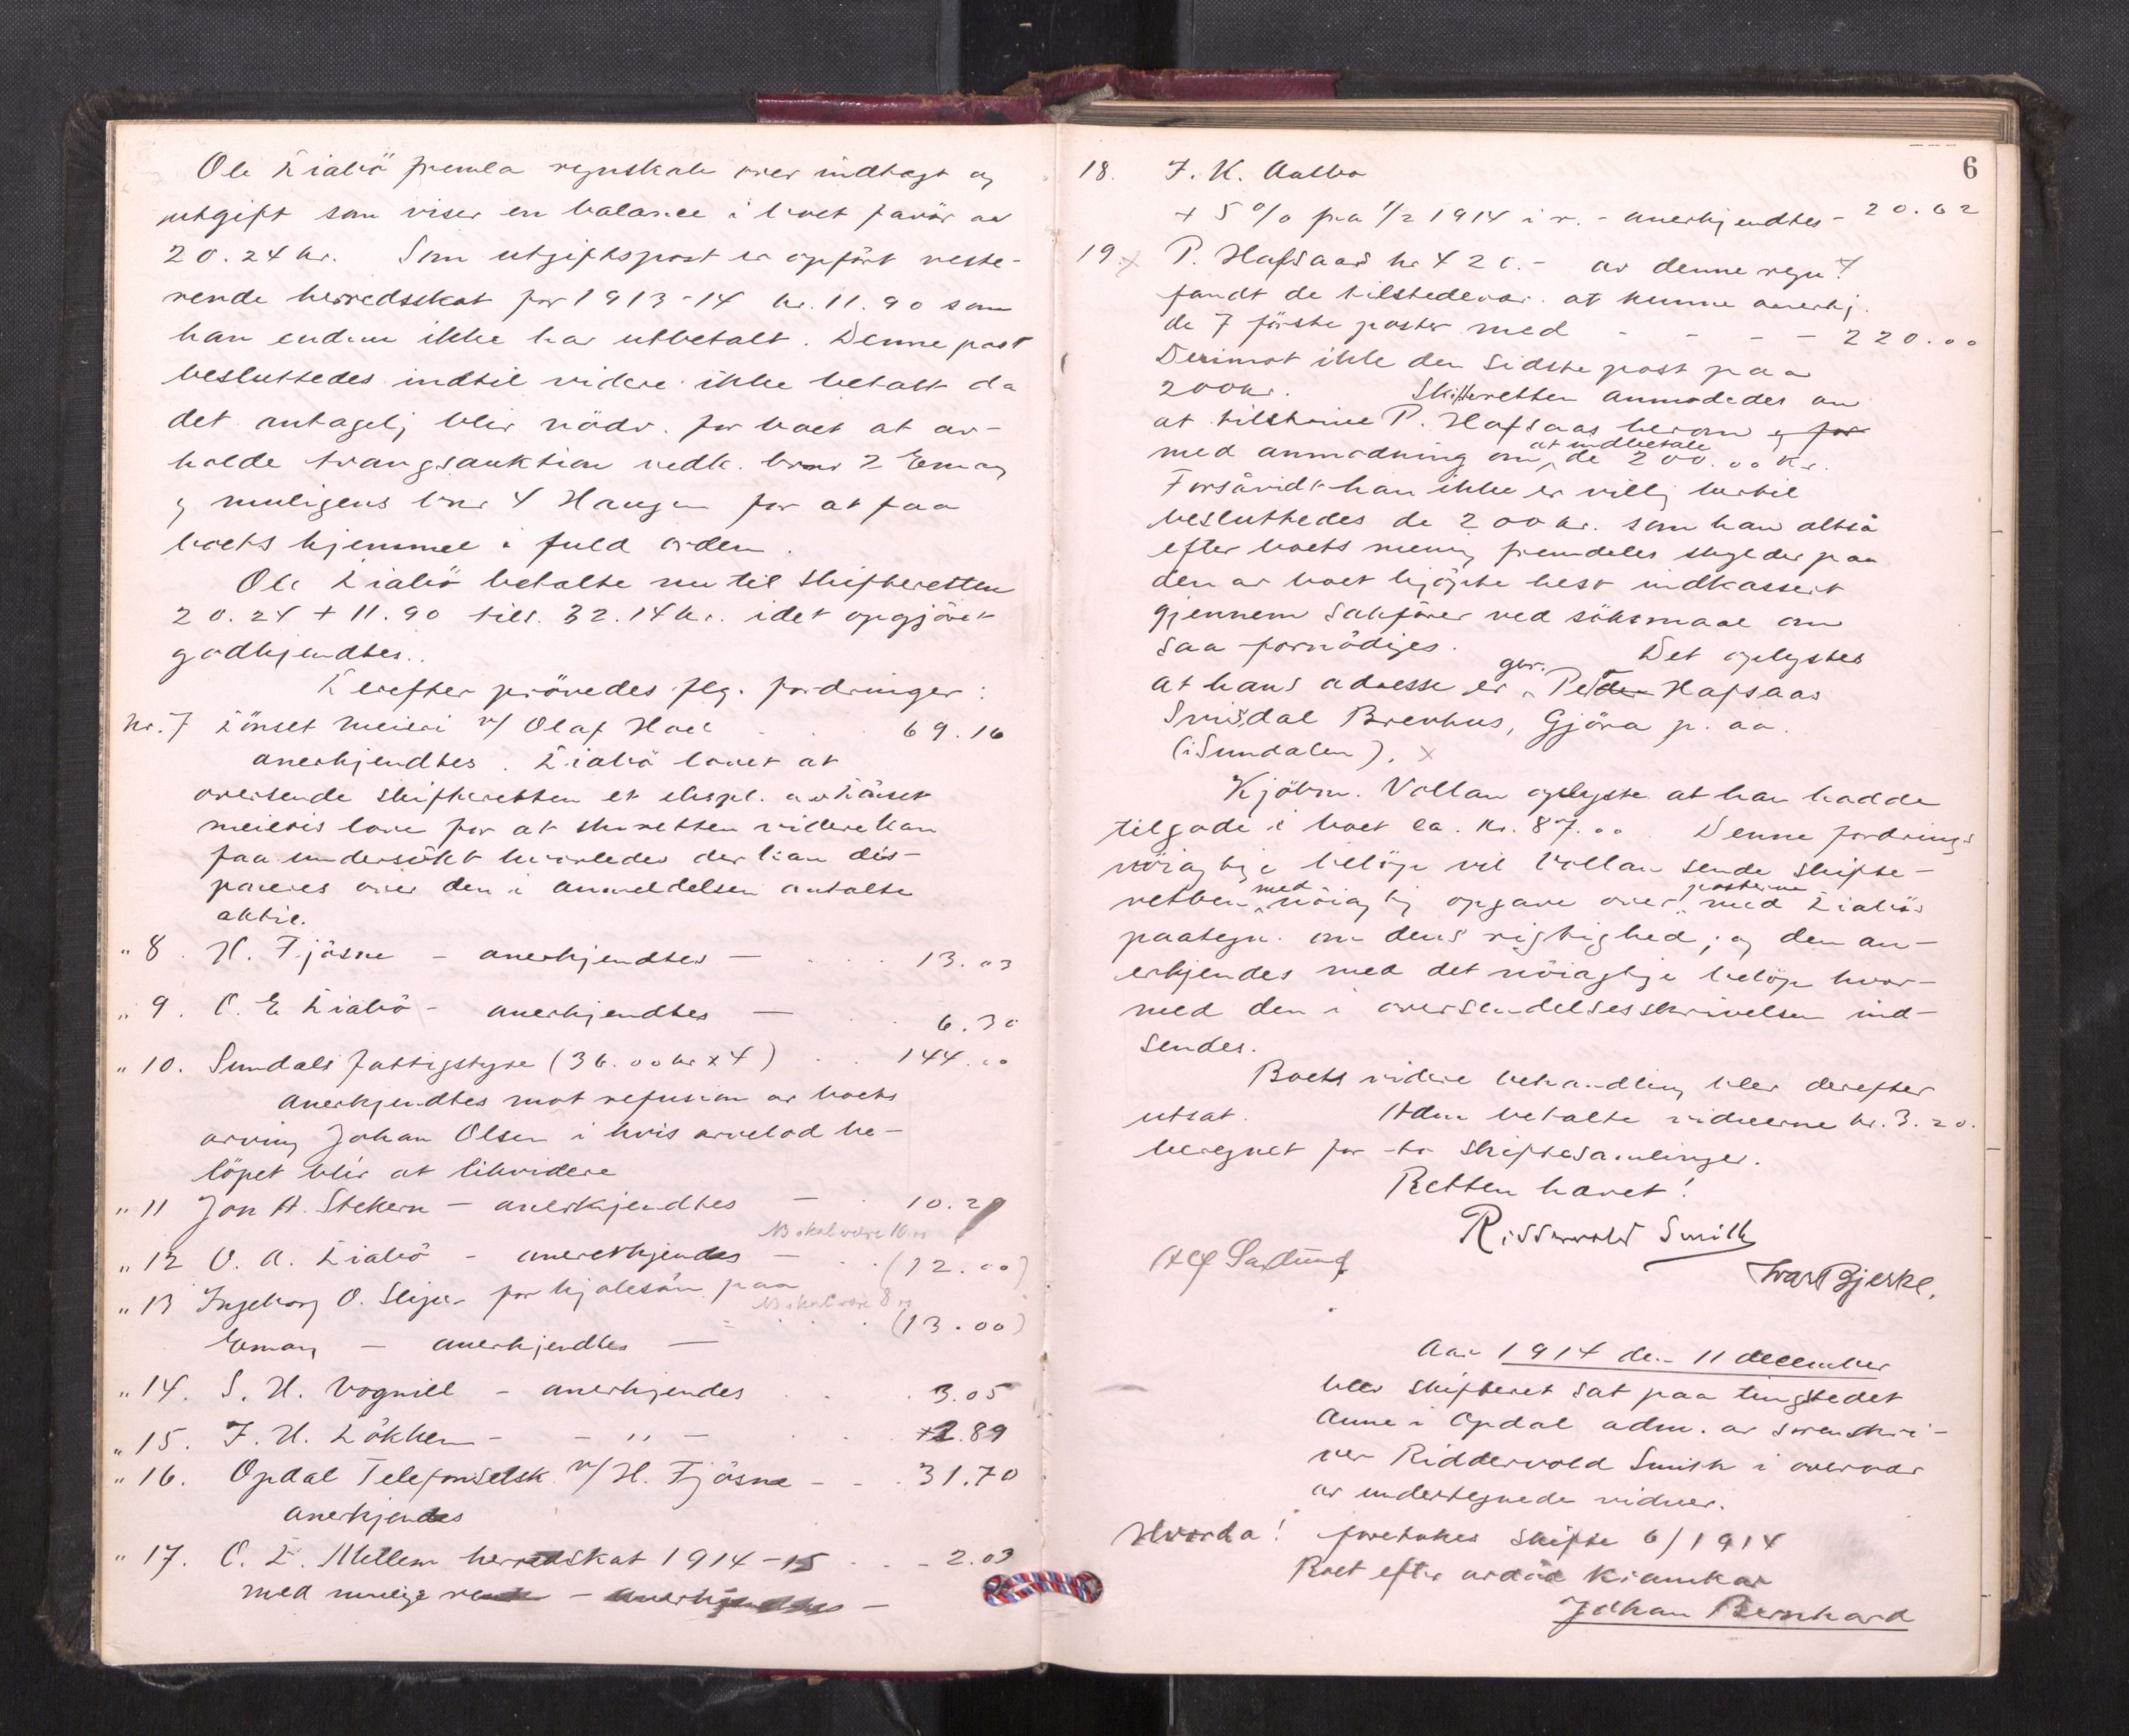 Ole Liabö fremla regnskab over indtægt og
utgift som viser en balance i boet favör av
20.24 kr. Som utgiftspost er opfört reste-
rende herredsskat for 1913-14 kr. 11.90 som
han endnu ikke har utbetalt. Denne post
besluttedes indtil videre ikke betalt da
det antagelj blir nödv. for boet at av-
holde tvangsauktion vedk. bnr 2 Eman
og muligens bnr 4 Haugen for at faa
boets hjemmel i fuld orden.
Ole Liabö betalte nu til skifteretten
20.24 + 11.90 tils. 32.14 kr. idet opgjöret
godkjendtes.
Derefter prövedes flg. fordringer:
Nr. 7 Lönset meieri v/ Olaf Hoel 69.16
anerkjendtes. Liabö lovet at
oversende skifteretten et expl. av Lönset
meieris love for at skretten videre kan
faa undersökt hvorledes der kan dis-
poneres over den i anmeldelsen antatte
aktie.
" 8. H. Fjösne - anerkjendtes - 13.03
" 9. O. E. Liabö - anerkjendtes - 6.30
" 10. Sundals fattigstyre (36.00 kr x 4) 144.00
Anerkjendtes mot refusion av boets
arving Johan Olsen i hvis arvelod be-
löpet blir at likvidere
" 11 Jon A. Stekern - anerkjendtes - 10.2
NB skal være 10
" 12 O. A. Liabö - anerkjendes - (12.00)
" 13 Ingeborg O. for kjolesöm paa
NB skal være 8
Eman - anerkjendtes - (13.00)
" 14. S. H. Vognill - anerkjendes 3.05
" 15. F. H. Lökken - - " - 2.89
" 16. Opdal Telefonselsk. v/ H. Fjösne - 31.70
anerkjendes
" 17. O. L. Mellem herredskat 1914-15 - 2.03
med mulige rente - anerkjendtes -
6
18. F. K. Aalbo
+ 5 % fra 1/2 1914 i r. - anerkjendtes - 20.62
19. x P. Hafsaas kr 420.- av denne regn.
fandt de tilstedevær. at kunne anerkj.
de 7 förste poster med - - - 220.00
Derimot ikke den sidste post paa
200 kr. Skifteretten anmodedes om
at tilskrive P. Hafsaas herom og for
med anmodning om at indbetale de 200.00 Kr.
Forsåvidt han ikke er villig hertil
besluttedes de 200 kr. som han altså
efter boets mening fremdeles skylder paa
den av boet kjöpte hest indkassert
gjennem sakförer ved söksmaal om
saa fornödiges. Det oplystes
at hans adresse er gbr. Peder Hafsaas
Svisdal Brenhus, Gjöra p. aa.
(i Sundalen). x
Kjöbm. Vollan oplyste at han hadde
tilgode i boet ca. kr. 87.00. Denne fordrings
nöiagtige belöp vil Vollan sende skifte-
retten med nöiagtig opgave over posterne med Liabös
paategn. om dens rigtighed; og den an-
erkjendes med det nöiagtige belöp hvor-
med den i oversendelsesskrivelsen ind-
sendes.
Boets videre behandling blev derefter
utsat. Adm. betalte vidnerne kr. 3.20.
beregnet for to skiftesamlinger.
Retten hævet!
Riddervold Smith
Ivar Bjerke.
Aar 1914 den 11 december
blev skifteret sat paa tingstedet
Aune i Opdal adm. av sorenskri-
ver Riddervold Smith i overvær
av undertegnede vidner.
Hvorda! foretokes skifte 6/1914
Boet efter avdöd Kirurk ar
Johan Bernhard